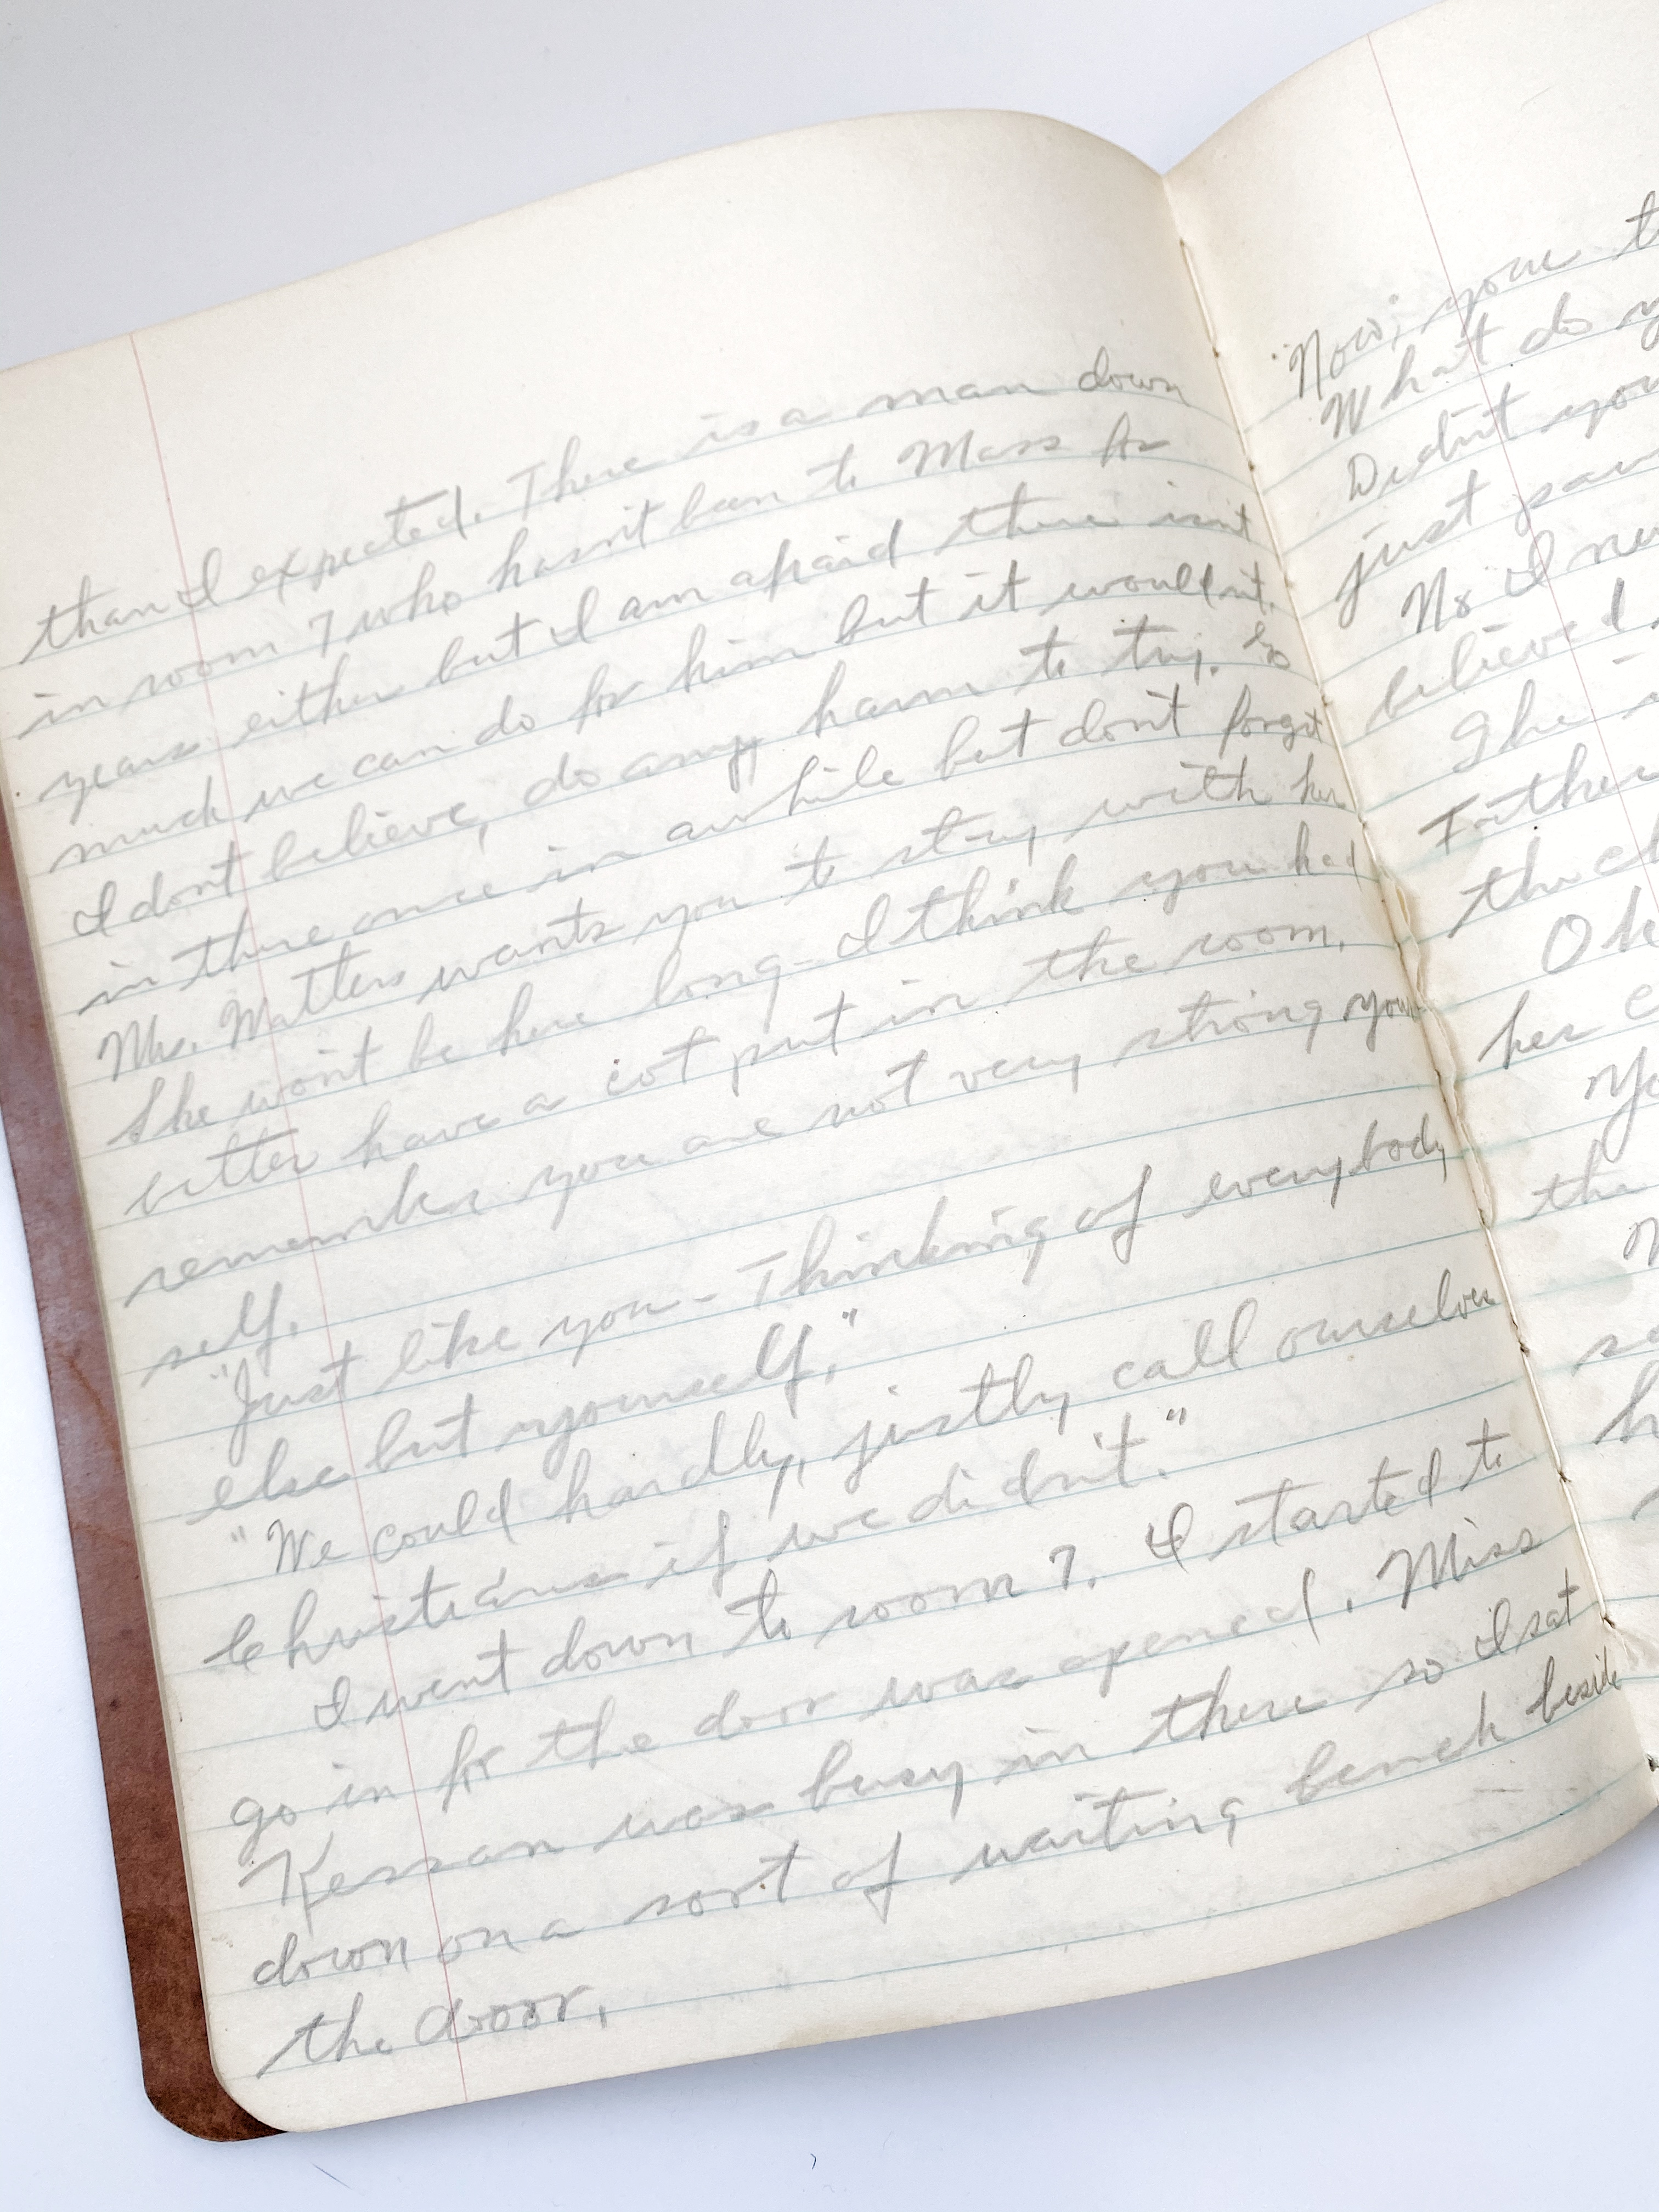 than I expected. There is a man down
in room 7 who hasn't been to Mass for
years either but I am afraid there isn't
much we can do for him but it wouldn't,
I dont believe, do any harm to try. Go
in there once in awhile but don't forget
Mrs. Watters wants you to stay with her
She won't be here long - I think you had
better have a cot put in the room.
remember you are not very strong your
self.
"Just like you - Thinking of everybody
else but yourself."
"We could hardly, justly call ourselves
Christians if we didn't."
I went down to room 7. I started to
go in for the door was opened. Miss
Kessan was busy in there so I sat
down on a sort of waiting bench beside
the door.
"Now, you're t
What do y
Didn't you
just sav
No I nev
believed.
She i
Father
the ch
Oh
her c
Yo
the